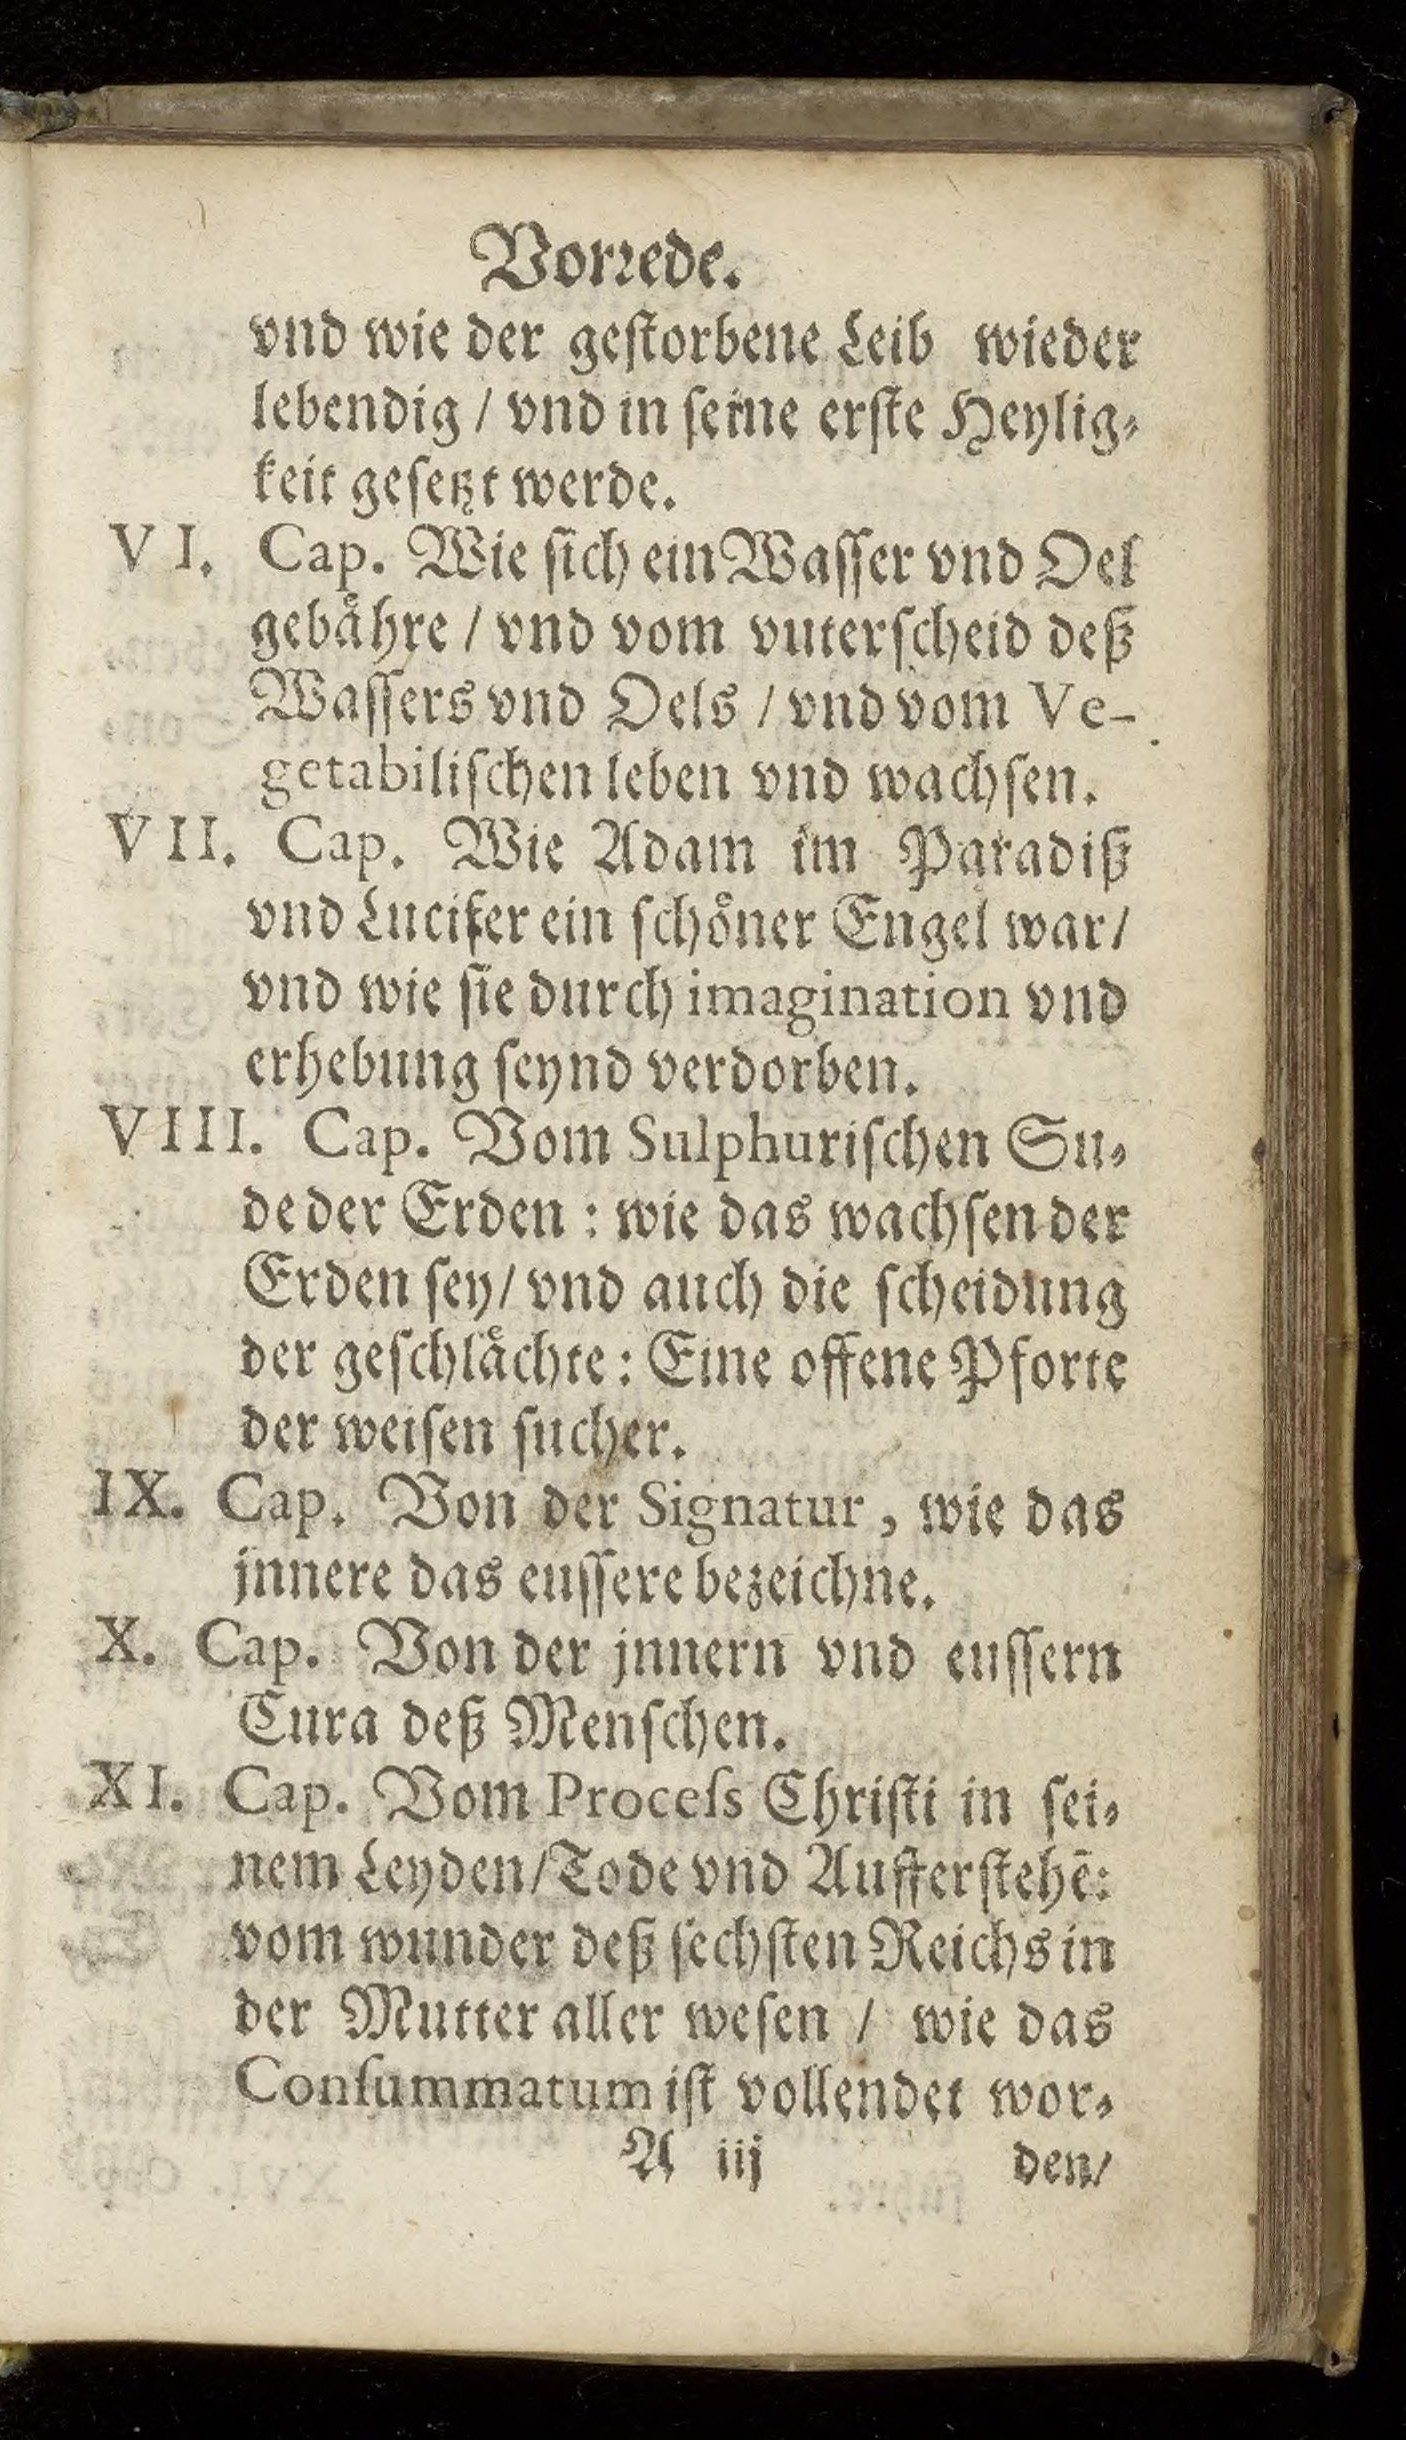 Vorꝛede.
vnd wie der geſtorbene Leib wieder
lebendig / vnd in ſeine erſte Heylig⸗
keit geſetzt werde.
VI. Cap. Wie ſich ein Waſſer vnd Oel
gebaͤhre / vnd vom vuterſcheid deß
Waſſers vnd Oels / vnd vom Ve-
getabiliſchen leben vnd wachſen.
VII. Cap. Wie Adam im Paradiß
vnd Lucifer ein ſchoͤner Engel war /
vnd wie ſie durch imagination vnd
erhebung ſeynd verdorben.
VIII. Cap. Vom Sulphuriſchen Su⸗
de der Erden : wie das wachſen der
Erden ſey / vnd auch die ſcheidung
der geſchlaͤchte : Eine offene Pforte
der weiſen ſucher.
IX. Cap. Von der Signatur , wie das
jnnere das euſſere bezeichne.
X. Cap. Von der jnnern vnd euſſern
Cura deß Menſchen.
XI. Cap. Vom Proceſs Chriſti in ſei⸗
nem Leyden / Tode vnd Aufferſtehẽ:
vom wunder deß ſechſten Reichs in
der Mutter aller weſen / wie das
Conſummatum iſt vollendet wor⸗
A iij den /